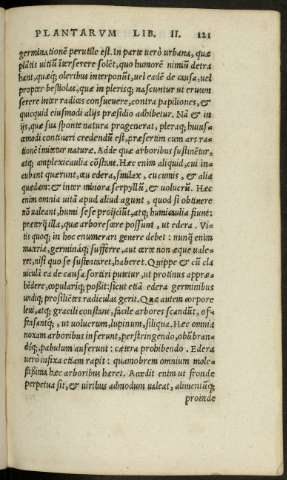 PLANTARVM LIB. II. 121
germinationē perutile est. In parte verò urbana, quæ
plātis uitiū īterserere solēt, quo humorē nimiū detra
hant, quæq; oleribus interponūt, uel eadē de causa, uel
propter bestiolas, quæ in plerisq; nascuntur ut eruum
serere inter radices consueuere, contra papiliones, &
quicquid eiusmodi alijs præsidio adhibetur. Nā & in
ijs, quæ sua sponte natura progenerat, pleraq; huius
modi contineri credendū est, præsertim cum ars ra-
tionē imitetur naturæ. Adde quæ arboribus sustinētur,
atq; amplexicaulia cōstant. Hæc enim aliquid, cui in-
cubant quærunt, ut edera, smilax, cucumis, & alia
quædam: & inter minora serpyllū, & uolucrū. Hæc
enim omnia uitā apud aliud agunt, quod si obtinere
nō ualeant, humi sese proijciūt, atq; humicaulia fiunt:
præter illa, quæ arborescere possunt, ut edera. Vi-
tis quoq; in hoc enumerari genere debet: nunq̄ enim
matrix, germinaq; sufferre, aut ærte non æque uale-
ret, nisi quo se sustineret, haberet. Quippe & cū cla
uiculā ea de causa sortiri putetur, ut protinus appræ-
hēdere, copulariq; possit: sicut etiā edera germinibus
undiq; prosiliētes radiculas gerit. Quæ autem corpore
leui, atq; gracili constant, facile arbores scandūt, of-
fusantq;, ut uolucrum, lupinum, siliqua. Hæc omnia
noxam arboribus inferunt, perstringendo, obūbran-
diq;, pabulum auferunt: cætera prohibendo. Edera
uero infixa etiam rapit: quamobrem omnium mole-
stissima hæc arboribus hæret. Accedit enim ut fronde
perpetua sit, & uiribus admodum ualeat, alimentūq;
proinde